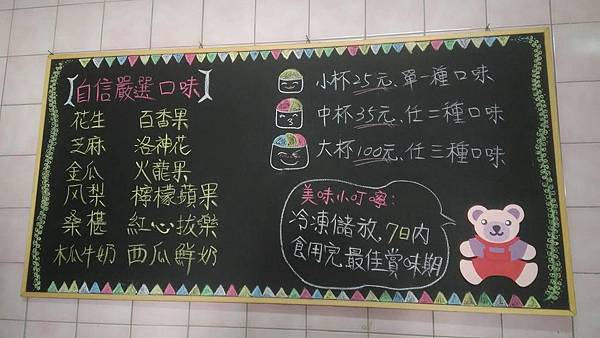 【自信嚴選口味】
花生 百香果
芝麻 洛神花
金瓜 火龍果
风梨 檸檬蘋果
桑椹 紅心拔樂
木瓜牛奶 西瓜鮮奶
小杯25元、單一種口味
中杯35元、任二種口味
大杯100元、任三種口味
美味小叮嚀：
冷凍儲放，7日內
食用完，最佳賞味期